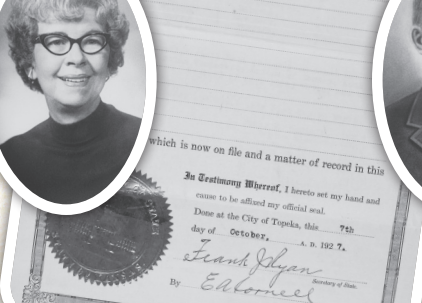 which is now on file and a matter of record in this
In Testimony Whereof, I hereto set my hand and
cause to be affixed my official seal.
Done at the City of Topeka, this 7th
day of October, A. D. 1927.
Frank J. Ryan
Secretary of State.
By E A Cornell